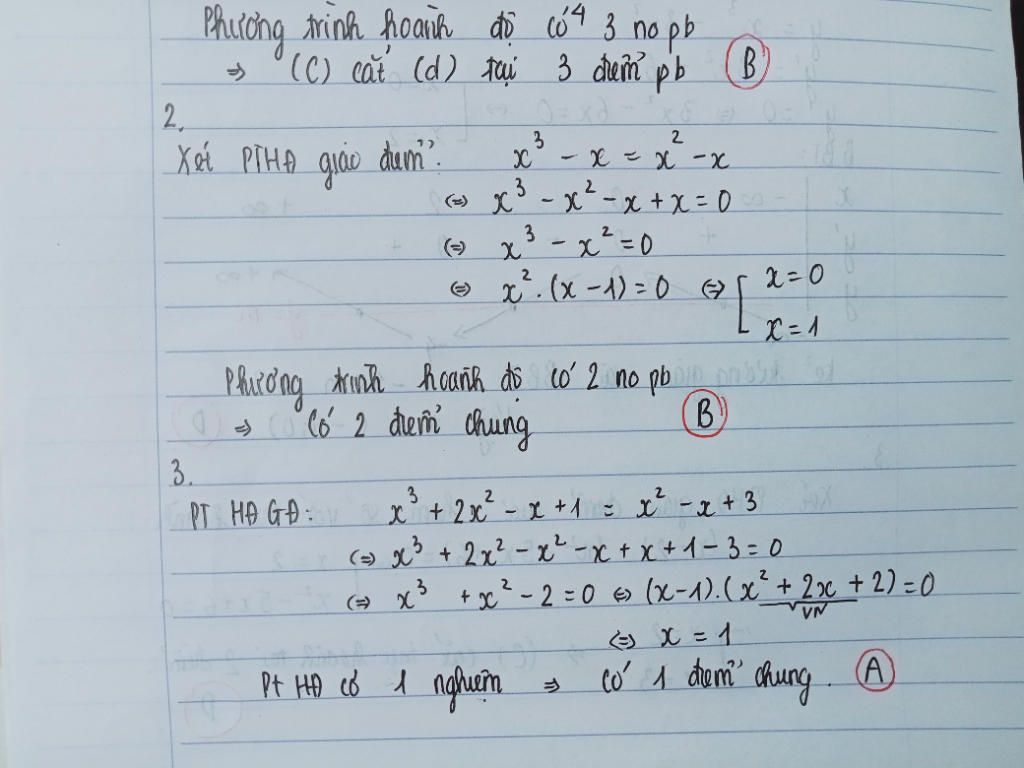 Phương trình hoành độ có 4 3 no pb
⇒ (C) cắt (d) tại 3 điểm pb B
2.
Xét PTHĐ giao điểm: x³ - x = x² - x
⇔ x³ - x² - x + x = 0
⇔ x³ - x² = 0
⇔ x² . (x - 1) = 0 ⇔ [ x = 0
x = 1
Phương trình hoành độ có 2 no pb
⇒ Có 2 điểm chung B
3.
PT HĐ GĐ: x³ + 2x² - x + 1 = x² - x + 3
⇔ x³ + 2x² - x² - x + x + 1 - 3 = 0
⇔ x³ + x² - 2 = 0 ⇔ (x - 1).(x² + 2x + 2) = 0
VN
⇔ x = 1
Pt HĐ có 1 nghiệm ⇒ có 1 điểm chung. A